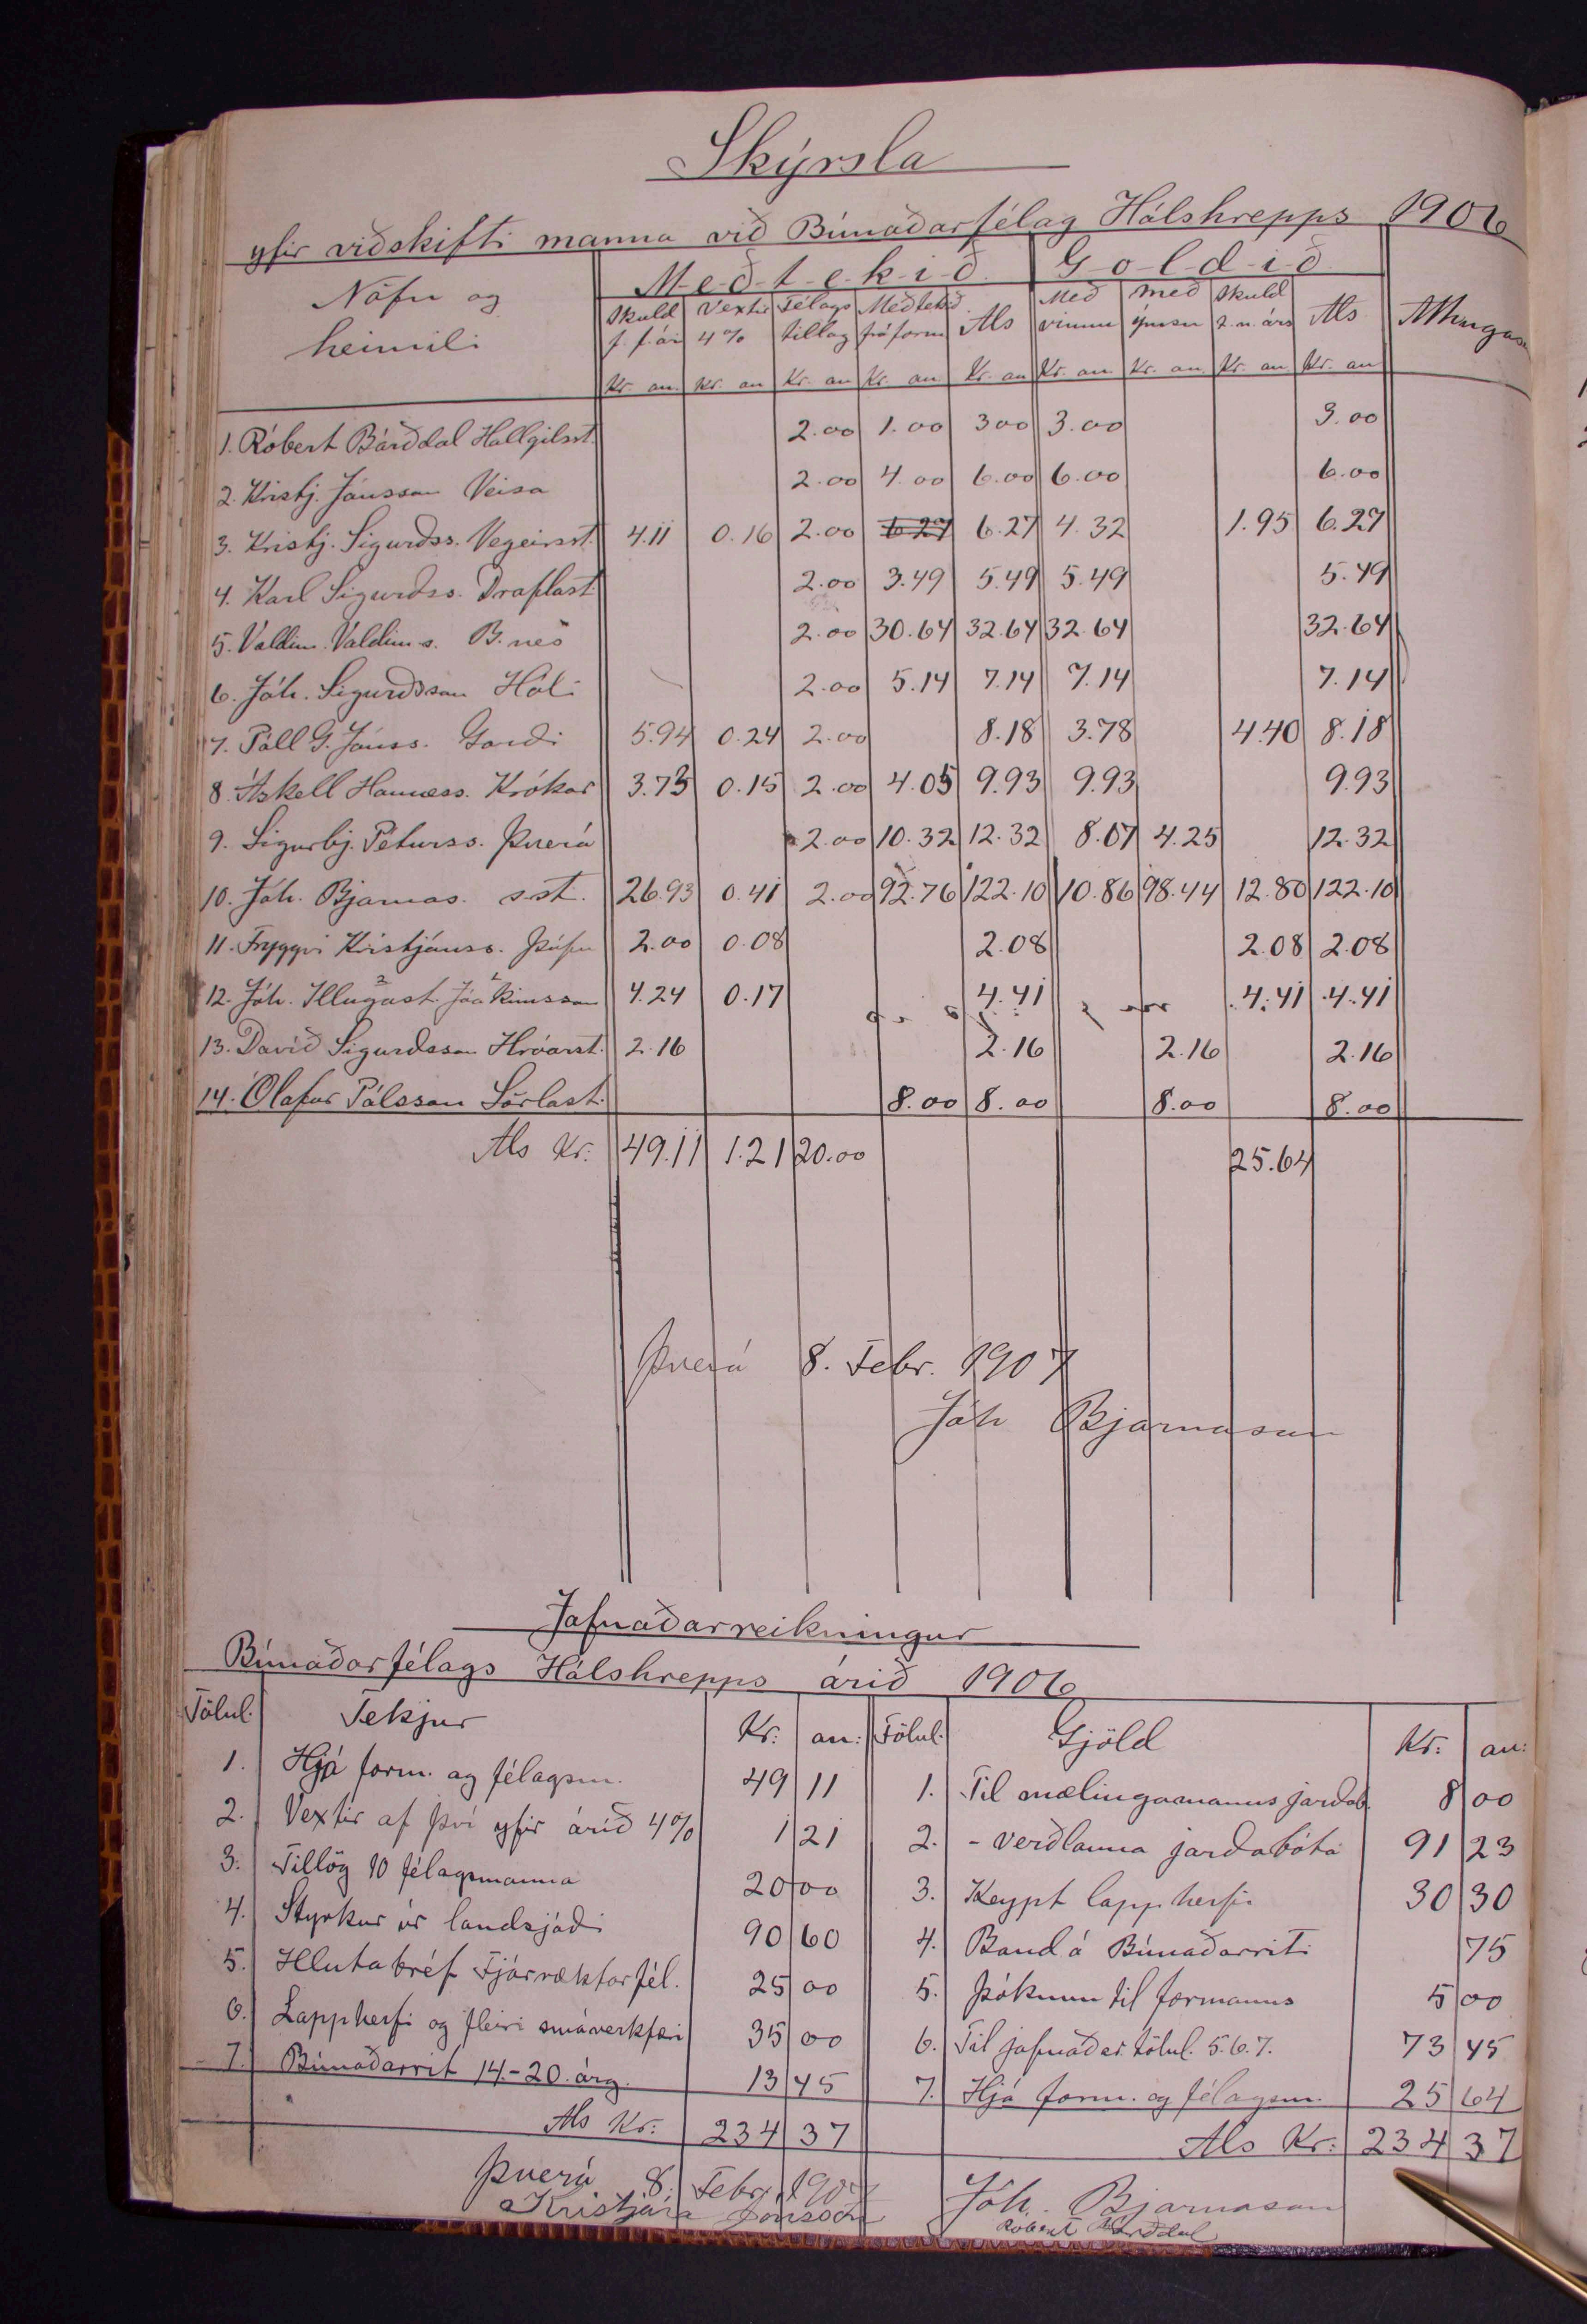 Skýrsla
yfir viðskifti manna við Búnaðarfélag Hálshrepps 1906
Nöfn og heimili M-e-ð-t-e-k-i-ð G-o-l-d-i-ð
Skuld f. f. ári Vextir 4% Félags tillag Meðtekið frá form Als Með vinnu með ýmsu Skuld z. n. árs Als Athugas
Kr. an. Kr. an Kr. an Kr. an Kr. an Kr. an. Kr. an. Kr. an Kr. an
1. Róbert Bárðdal Hallgilsst. 2.00 1.00 3 00 3.00 3.00
2. Kristj. Jónsson Veisa 2.00 4.00 6.00 6.00 6.00
3. Kristj. Sigurðss. Vegeirsst. 4.11 0.16 2.00 6 27 6.27 4.32 1.95 6.27
4. Karl Sigurðss. Draflast. 2.00 3.49 5.49 5.49 5.49
5. Valdim. Valdim-s. B. nes 2.00 30.64 32.64 32.64 32.64
6. Jóh. Sigurðsson Hóli 2.00 5.14 7.14 7.14 7.14
7. Páll G. Jónss. Garði 5.94 0.24 2.00 8.18 3.78 4.40 8.18
8. Áskell Hanness. Krókar 3.73 0.15 2.00 4.05 9.93 9.93 9.93
9. Sigurbj. Péturss. Þverá 2.00 10.32 12.32 8.07 4.25 12.32
10. Jóh. Bjarnas. s.st. 26.93 0.41 2.00 92.76 122.10 10.86 98.44 12.80 122.10
11. Tryggvi Kristjánss. Þúfu 2.00 0.08 2.08 2.08 2.08
12. Jóh. Illugast. Jóakimsson 4.24 0.17 4.41 4.41 4.41
13. Davíð Sigurðsson Hróarst. 2.16 2.16 2.16 2.16
14. Ólafur Pálsson Sörlast. 8.00 8.00 8.00 8.00
Als Kr: 49.11 1.21 20.00 25.64
Þverá 8. Febr. 1907
Jóh Bjarnason
Jafnaðarreikningur
Búnaðarfélags Hálshrepps árið 1906
Tölul. Tekjur Kr: an: Tölul. Gjöld Kr: an:
1. Hjá form. og félagsm. 49 11 1. Til mælingamanns jarðab. 8 00
2. Vextir af því yfir árið 4% 1 21 2. - verðlauna jarðabóta 91 23
3. Tillög 10 félagsmanna 20 00 3. Keypt lappherfi 30 30
4. Styrkur úr landsjóði 90 60 4. Band á Búnaðarriti 75
5. Hlutabréf Fjárræktarfél. 25 00 5. Þóknun til formanns 5 00
6. Lappherfi og fleiri smáverkfæri 35 00 6. Til jafnaðar tölul. 5.6.7. 73 45
7. Búnaðarrit 14-20. árg. 13 45 7. Hjá form. og félagsm. 25 64
Als Kr: 234 37 Als Kr: 234 37
Þverá 8. Febr. 1907 Jóh. Bjarnason
Kristján Jónsson Róbert Bárðdal